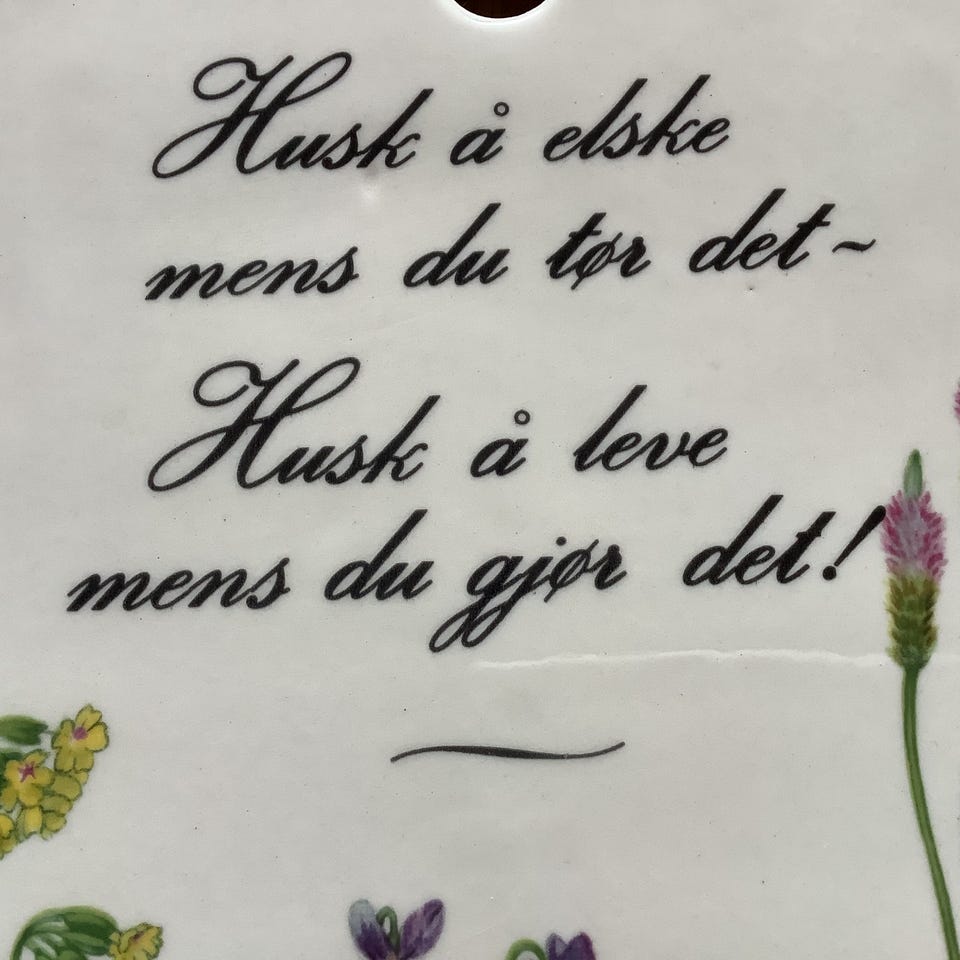 Husk å elske
mens du tør det ~
Husk å leve
mens du gjør det!